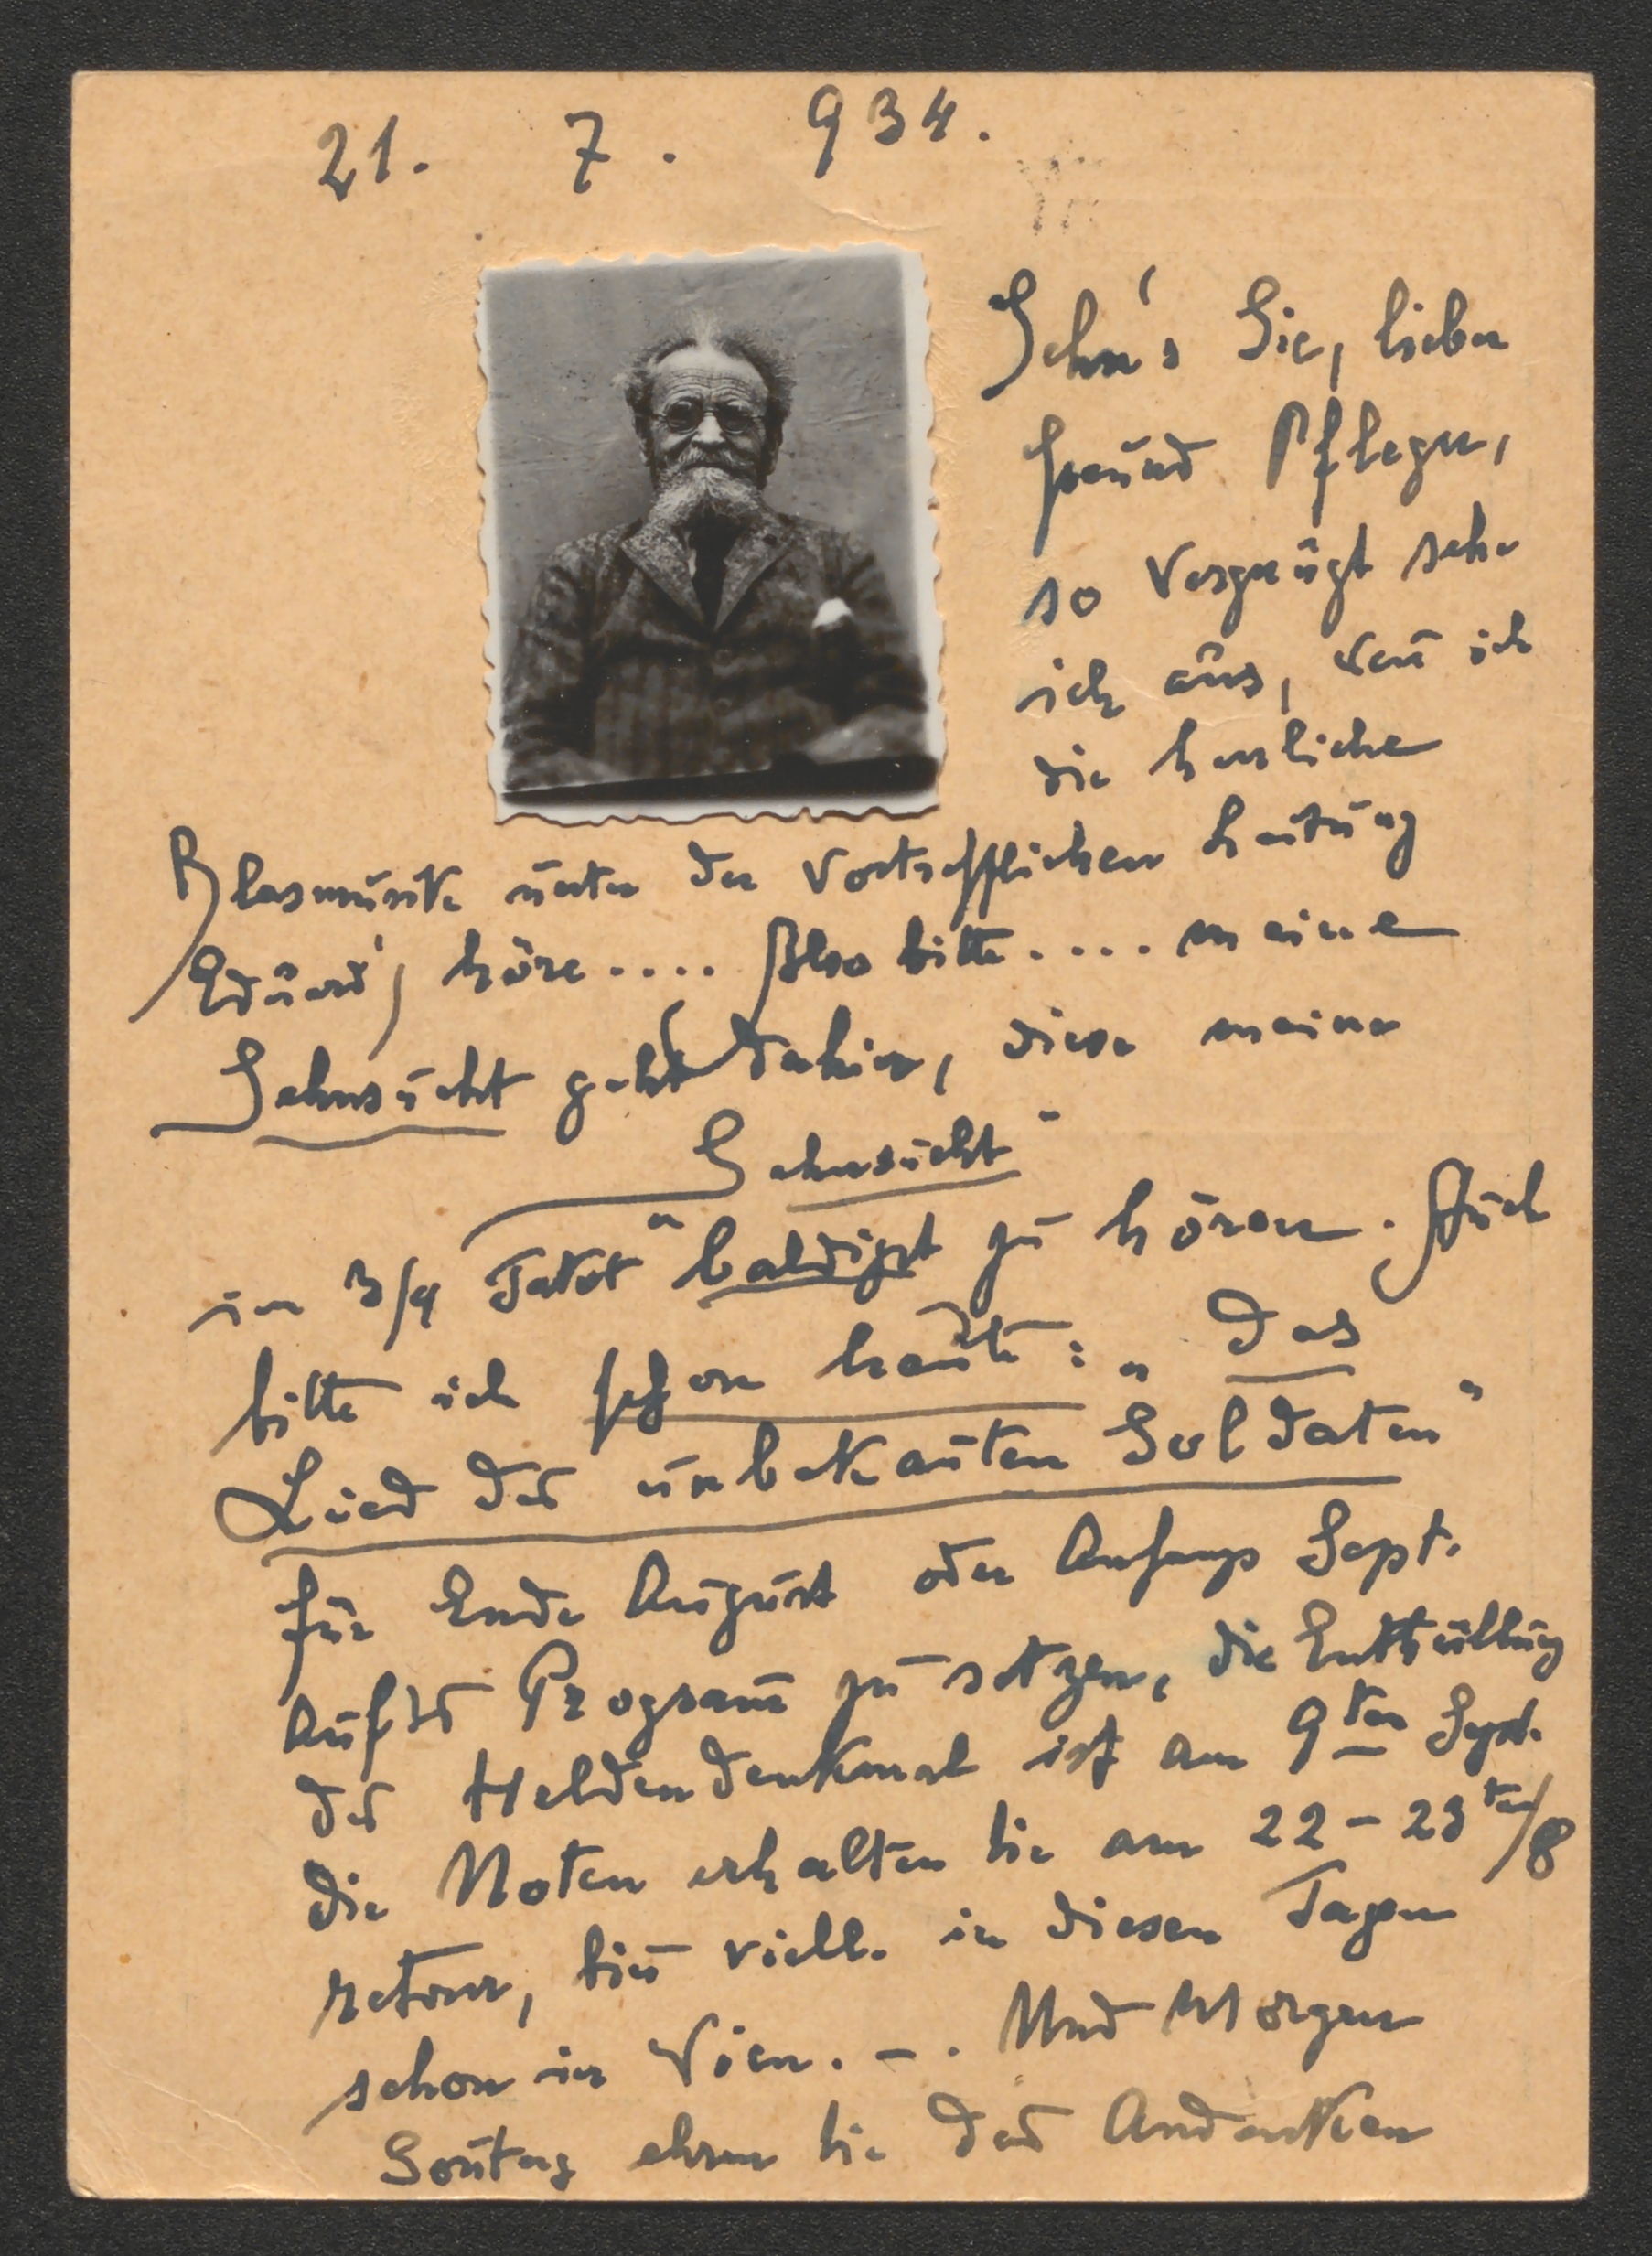 21. 7. 934.
Sehn's Sie, lieber
Freund Pfleger,
so vergnügt sehe
ich aus, wen̄ ich
die herrliche
Blasmusik unter der vortrefflichen Leitung
Eduard, höre.... Also bitte.... meine
Sehnsucht geht dahin, diese meine
„Sehnsucht"
im 3/4 Takt" baldigst zu hören. Auch
bitte ich schon heute: „Das
Lied des unbekan̄ten Soldaten"
für Ende August oder Anfangs Sept.
aufs Program̄ zu setzen, die Enthüllung
des Heldendenkmal ist am 9ten Sept.
die Noten erhalten Sie am 22-23ten/8
retour, bin̄ viell. in diesen Tagen
schon in Wien. -. Und Morgen
Son̄tag ehren Sie das Andenken